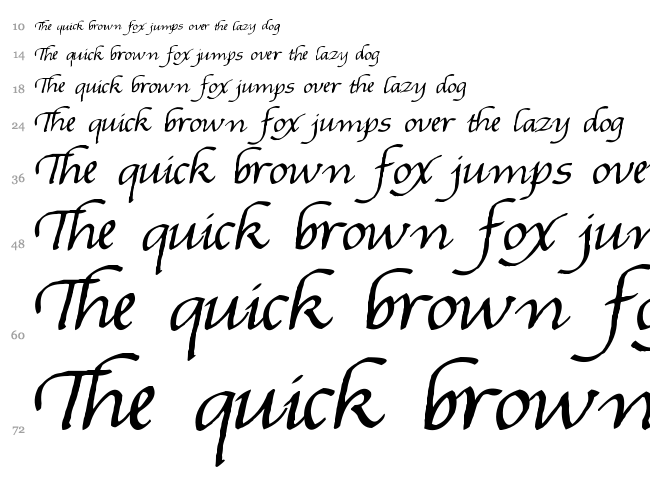 10 The quick brown fox jumps over the lazy dog
14 The quick brown fox jumps over the lazy dog
18 The quick brown fox jumps over the lazy dog
24 The quick brown fox jumps over the lazy dog
36 The quick brown fox jumps ove
48 The quick brown fox jun
60 The quick brown fo
72 The quick brown